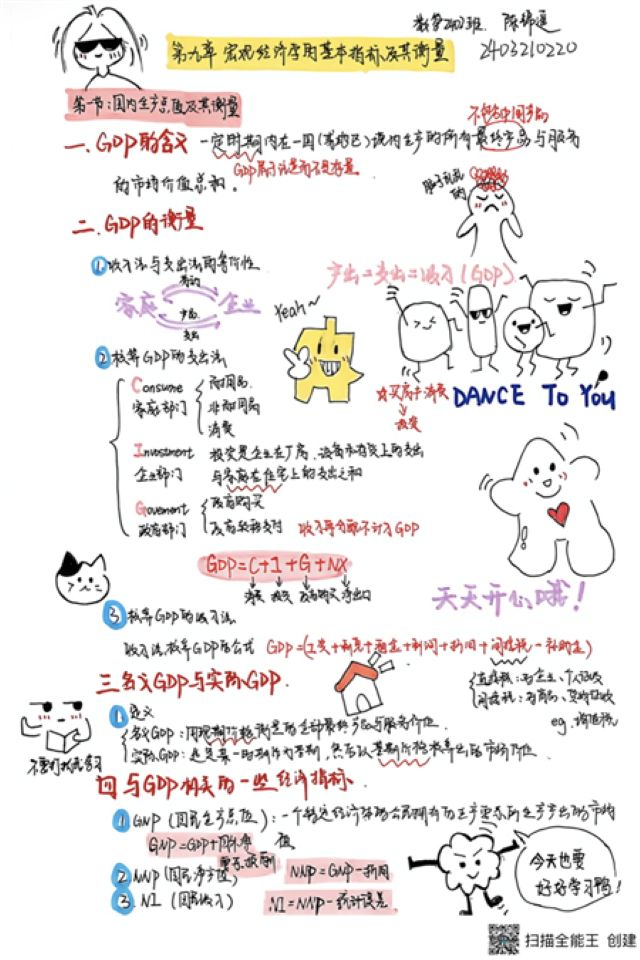 数争2402班 陈
2403210220
第九章 宏观经济学的基本指标及其衡量
第一节:国内生产总值及其衡量
一、GDP的含义 一定时期内在一国(或地区)境内生产的所有最终产品与服务
不包含中间产品
的市场价值总和。 GDP属于流量而不是存量。
脑子乱乱的
二、GDP的衡量
1.收入法与支出法的等价性
产出=支出=收入(GDP)
劳动
家庭 企业
产品
支出
Yeah~
2 核算GDP的支出法
Consume 耐用品
家庭部门 非耐用品
消费
买房≠消费
投资
DANCE To YOU
Investment 投资是企业在厂房、设备和存货上的支出
企业部门 与家庭在住宅上的支出之和
Goverment 政府购买
政府部门 政府转移支付 收入再分配不计入GDP
GDP=C+I+G+NX
消费 投资 政府购买 净出口
天天开心哦!
3 核算GDP的收入法
收入法核算GDP的公式 GDP=(工资+利息+租金+利润+折旧+间接税-补助金)
三、名义GDP与实际GDP.
直接税:对企业、个人征收
间接税:对商品、交易征收
eg.消费税
1 定义
名义GDP:用现期价格衡量的全部最终产品与服务价值.
实际GDP:选定某一时期作为基期,然后以基期价格核算出的市场价值.
不要打扰我学习
四 与GDP相关的一些经济指标.
1 GNP(国民生产总值):一个特定经济体的公民拥有的生产要素所生产产出的市场
价值.
GNP=GDP+国外净
要素报酬
2 NNP(国民净产值) NNP=GNP-折旧
3. NI(国民收入) NI=NNP-统计误差.
今天也要
好好学习鸭!
扫描全能王 创建